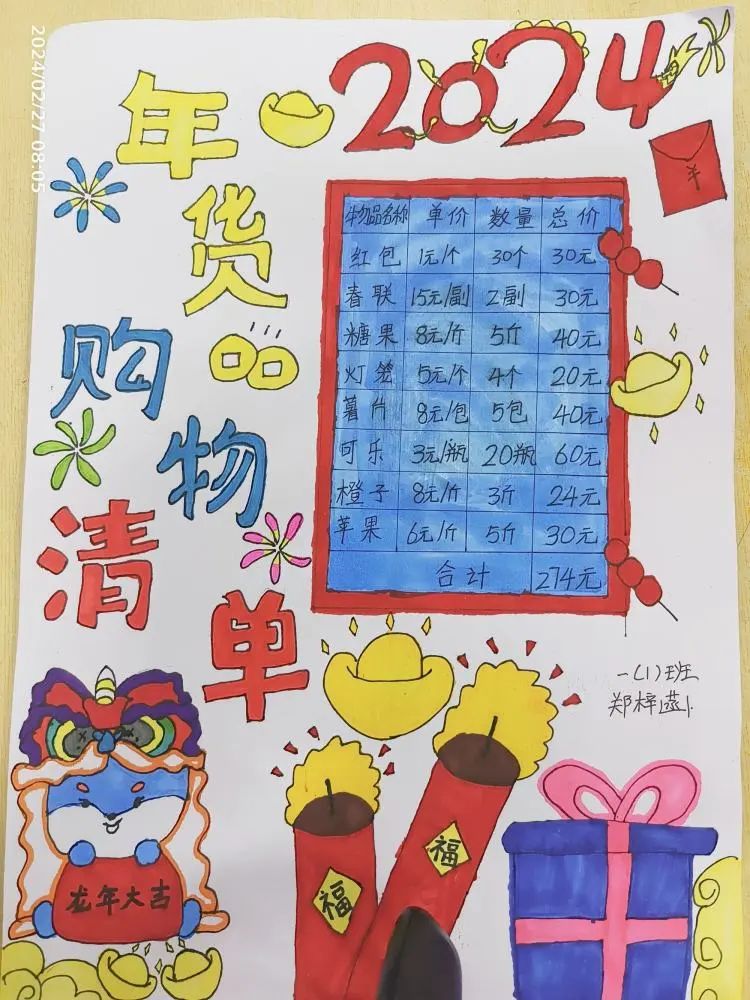 2024/02/27 08:05
2024
年货
购物
清单
物品名称 单价 数量 总价
红包 1元/个 30个 30元
春联 15元/副 2副 30元
糖果 8元/斤 5斤 40元
灯笼 5元/个 4个 20元
薯片 8元/包 5包 40元
可乐 3元/瓶 20瓶 60元
橙子 8元/斤 3斤 24元
苹果 6元/斤 5斤 30元
合计 274元
¥
一(1)班
郑梓
龙年大吉
福
福